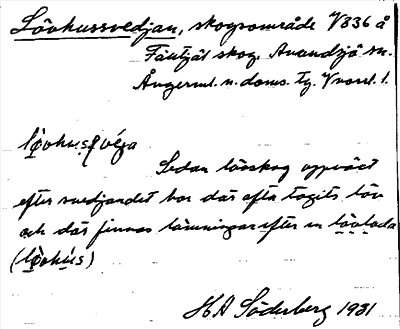 Lövhussvedjan, skogsområde V336 å
Fäntjäl skog, Anundsjö sn.
Ångerml. n. doms. Tg. Vnorrl. l.
Sedan lövskog uppväxt
efter svedjandet har där ofta tagits löv
och där finnas lämningar efter en lövlada
(lövhús)
H A Söderberg 1931